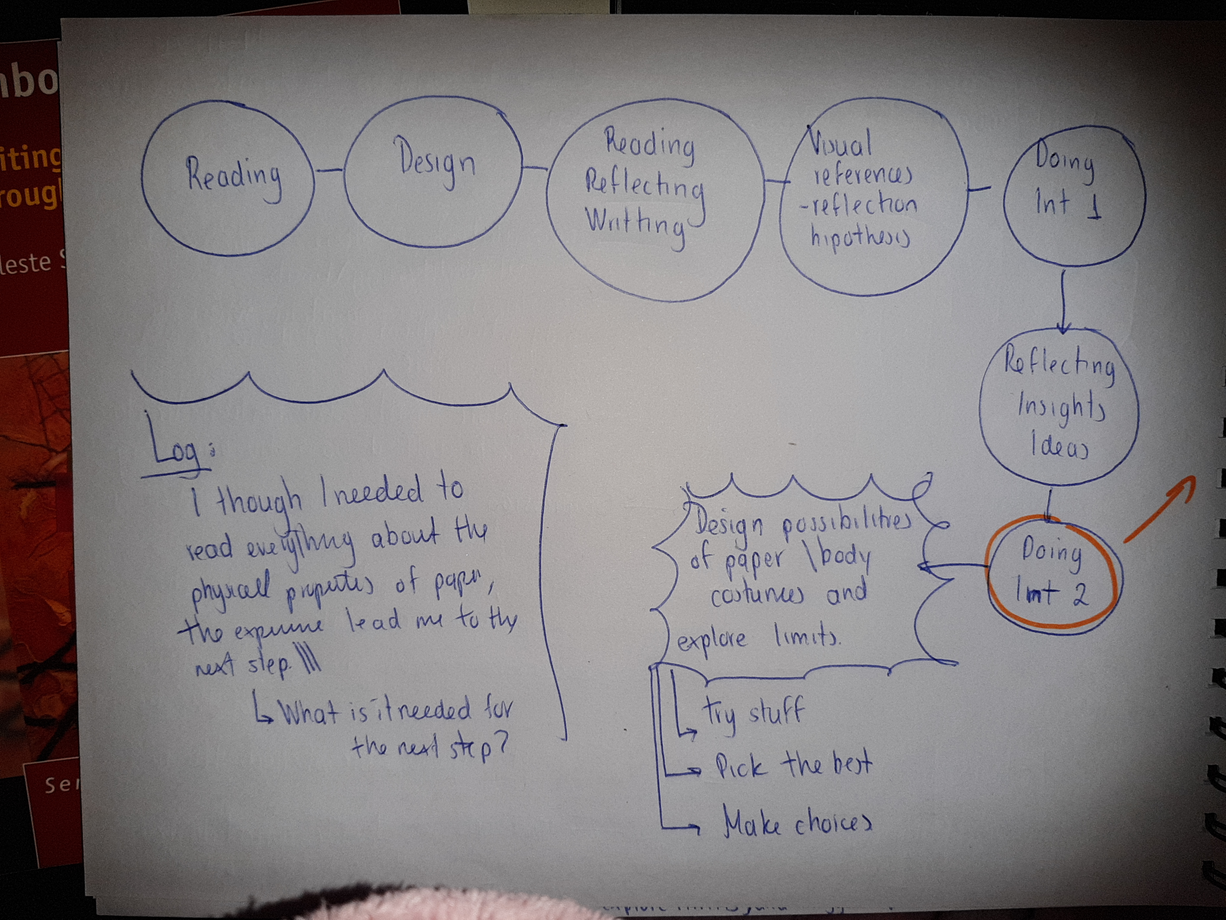 Reading
Design
Reading
Reflecting
Writting
Visual
references
-reflection
hipothesis
Doing
Int 1
Reflecting
Insights
Ideas
Doing
Int 2
Log:
I though I needed to
read everything about the
physicall propertes of paper,
the experience lead me to the
next step.
What is it needed for
the next step?
Design possibilities
of paper \body
costumes and
explore limits.
Try stuff
Pick the best
Make choices
nbo
iting
roug
leste S
Ser